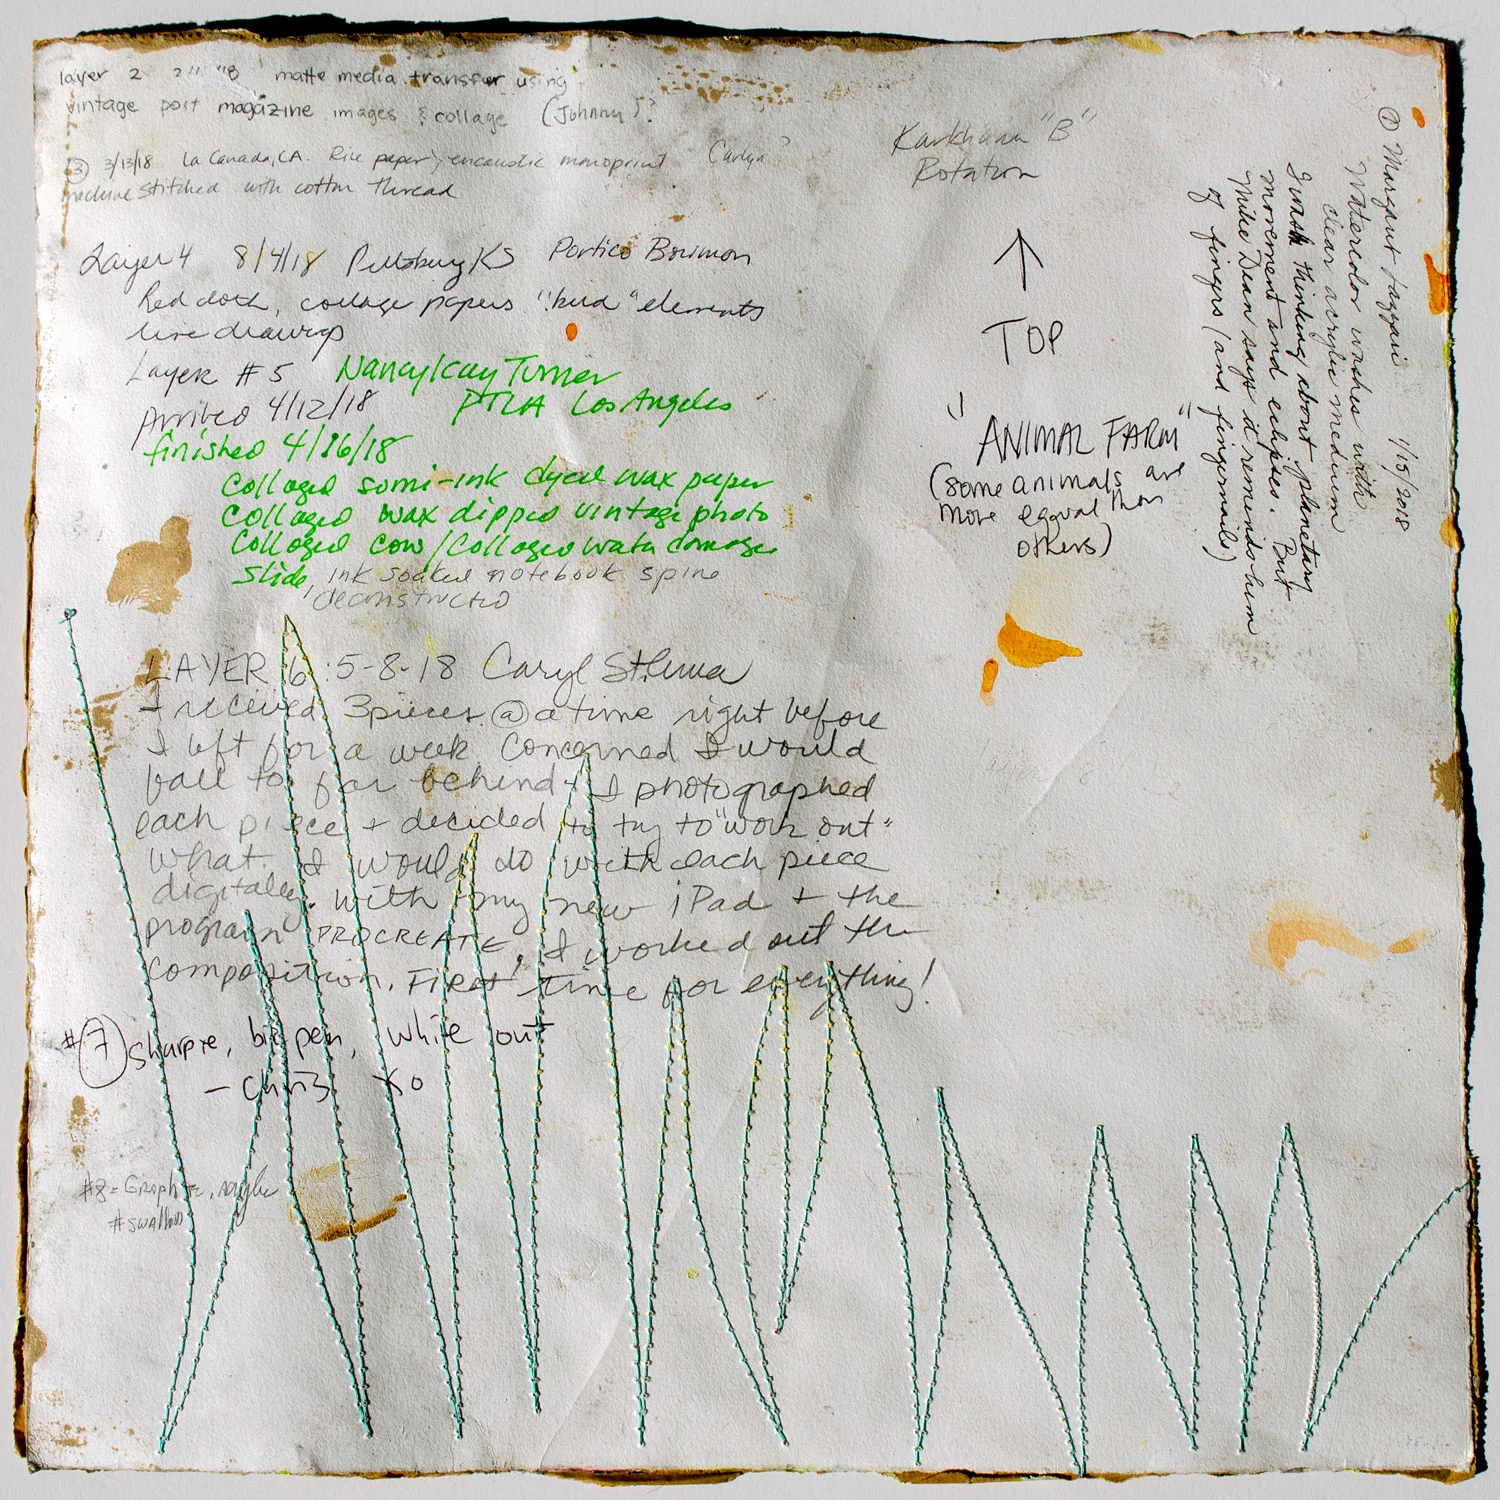 layer 2 matte media transfer using
vintage post magazine images & collage (Johnny)?
③ 3/13/18 La Canada, CA. Rice paper, encaustic monoprint
machine stitched with cotton thread
Karkhana "B"
Rotation
↑
TOP
"ANIMAL FARM"
(some animals are
more equal than
others)
① Margaret 1/15/2018
Watercolor washes with
clear acrylic medium
I was thinking about planetary
movement and eclipses. But
Mike Dean says it reminds him
of fingers (and fingernails)
Layer 4 8/4/18 KS Portico
Red cloth, collage papers elements
line drawings
Layer #5 Nancy Kay Turner
Arrived 4/12/18 DTLA Los Angeles
finished 4/16/18
Collaged sumi-ink dyed wax paper
Collaged wax dipped vintage photo
Collaged cow/Collaged water damage
Slide, ink soaked notebook spine
deconstructed
LAYER 6: 5-8-18 Caryl
I received 3 pieces @ a time right before
I left for a week Concerned I would
fall to far behind I photographed
each piece + decided to try to "work out"
what I would do with each piece
digitaley. With my new iPad + the
program PROCREATE, I worked out the
composition. First time for everything!
#⑦ sharpie, bic pen, white out
- Chris xo
#8 = Graphite, acrylic